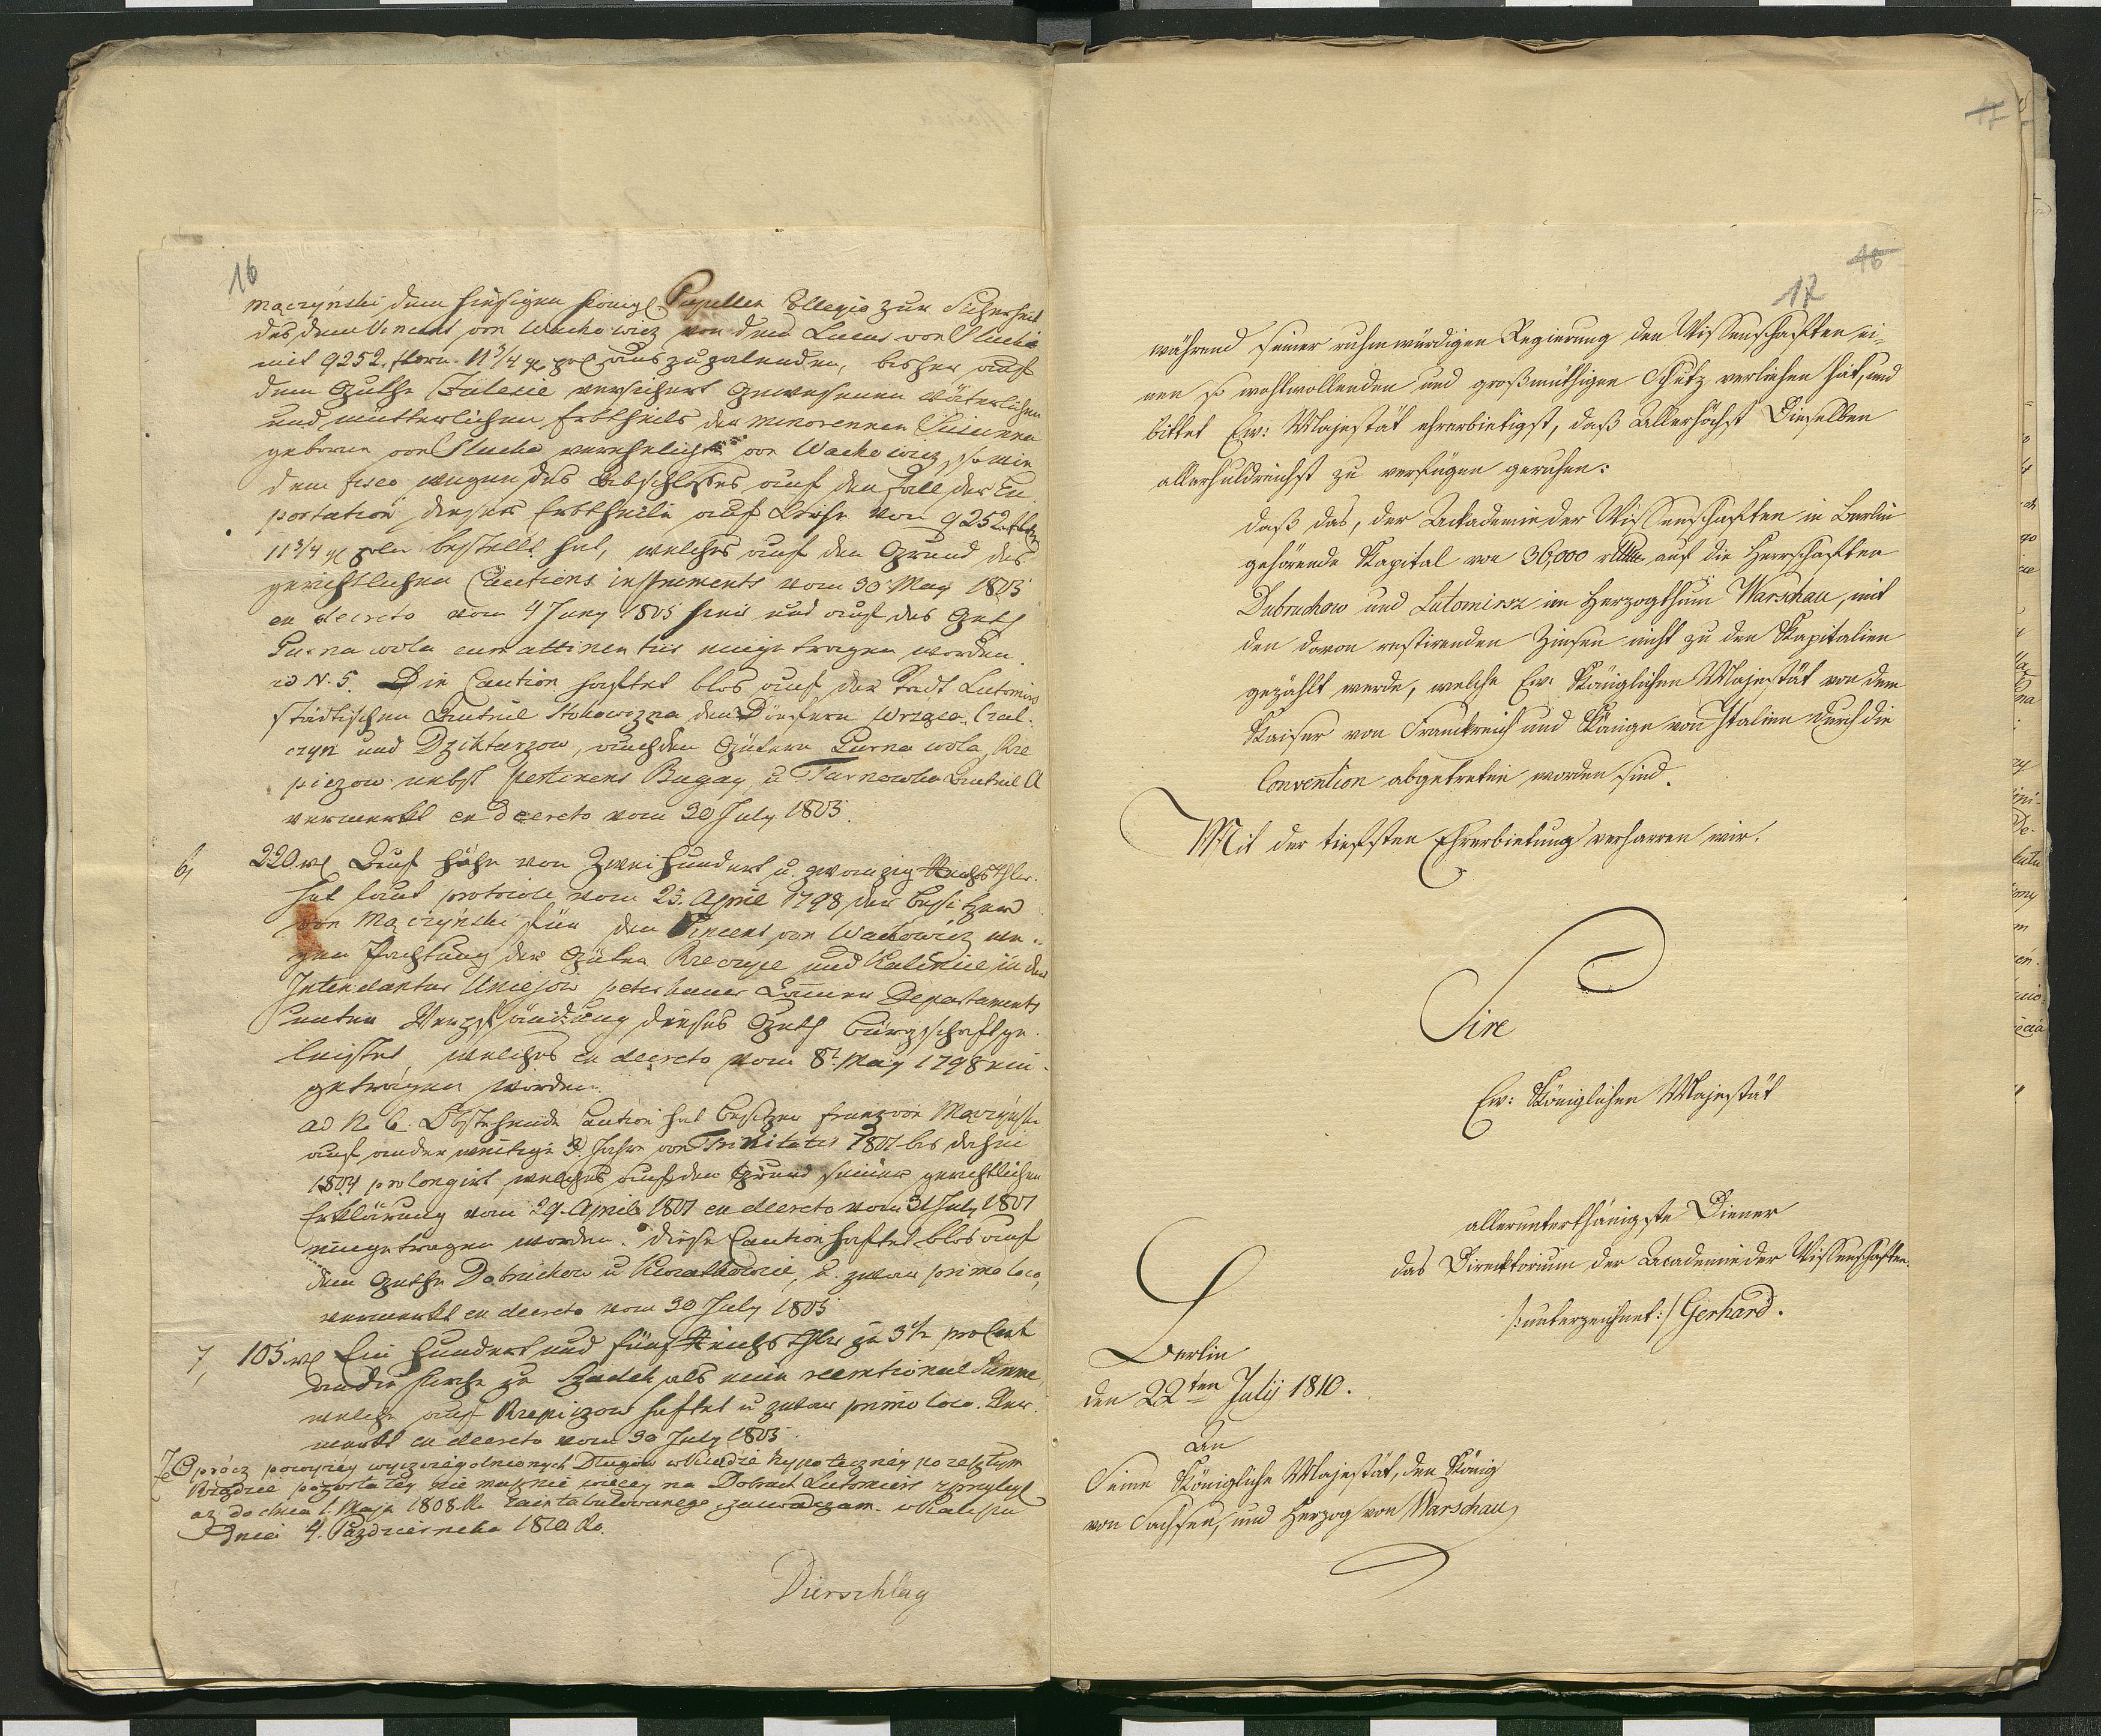 16
Mączyński dem hiesigen Königl Pupillen Collegio zur Sicherheit
des dem Vincent von Wachowicz von dem Lucas von Plucha
mit 9252. flor. 11 3/4 gr pol auszuzalenden, bisher auf
dem Guthe versichert gewesenen väterlichen
und mütterlichen Erbtheils der minorennen Susanna
geboren von Plucha verehelichte von Wachowicz, so wie
dem fisco wegen des Abschosses auf den Fall der Ex
portation dieses Erbtheils auf Höhe von 9252
11 3/4 gr poln bestellt hat, welches auf den Grund des
gerichtlichen Cautions instruments vom 30 May 1803
ex decreto vom 4 Juny 1805 hier und auf das Guth
Gurna wola cum attinentiis eingetragen worden.
ad N. 5. Die Caution haftet blos auf der Stadt Lutomirs
städtischen Antheil Stokowizna den Dörfern
czyn und Dziktarzow, auch den Gütern Gurna wola, Kre
piczow nebst pertinenz Bugay, u Tarnowka Antheil A
vermerkt ex decreto vom 30 July 1805.
6, 220 rtl Auf Höhe von Zweihundert u. zwanzig Reichsthlr.
hat laut protocoll vom 25. April 1798 der Besitzer
von Mączyński für den Vincent von Wachowicz we-
gen Pachtung der Güter und in der
Intendantur Uniejow peterkauer Cammer Departements
unter Verpfändung dieses Guth Bürgschaft ge-
leistet, welches ex decreto vom 8t May 1798 ein-
getragen worden.
ad No 6. Obstehende Caution hat Besitzer Franz von Mączyński
auf anderweitige 3 Jahre von Trinitatis 1801 bis dahin
1804 prolongirt, welches auf den Grund seiner gerichtlichen
Erklärung vom 29. April 1801 ex decreto vom 31 July 1801
eingetragen worden. Diese Caution haftet blos auf
dem Guthe Dobruchow u Kwiatkowice, u. zwar primo loco,
vermerkt ex decreto vom 30 July 1805
7, 105 rtl Ein Hundert und fünf Reichsthlr zu 3 1/2 pro Cent
an die Kirche zu Szadek als eine reemtional Summe,
welche auf Krepiczow haftet u zwar primo loco. Ver-
merkt ex decreto vom 30 July 1805.
Że Oprócz powyżey wyszczegolnionych Dlugow w Xiędze hypoteczney po zeszłym
Rządzie pozostałey nic więcey na Dobrach Lutomiersk
aż do dnia 1. Maja 1808. R. zaintabulowanego, zaswiadczam. w Kaliszu
Dnia 4. Pazdziernika 1810 Ro.
Dierschlag
17
18
17
während seiner ruhmwürdigen Regierung den Wissenschaften ei-
nen so wohlwollenden und großmüthigen Schutz verliehen hat, und
bittet Ew: Majestät ehrerbietigst, daß Allerhöchst Dieselben
allerhuldreichst zu verfügen geruhen:
daß das, der Academie der Wissenschaften in Berlin
gehörende Kapital von 36,000 rthlr. auf die Herrschaften
Dubruchow und Lutomirsz im Herzogthum Warschau, mit
den davon restirenden Zinsen nicht zu den Kapitalien
gezählt werde, welche Ew: Königlichen Majestät von dem
Kaiser von Frankreich und Könige von Italien durch die
Convention abgetreten worden sind.
Mit der tiefsten Ehrerbietung verharren wir.
Sire
Ew: Königlichen Majestät
allerunterthänigste Diener
das Direktorium der Academie der Wissenschaften.
/:unterzeichnet:/ Gerhard.
Berlin
den 22ten Julij 1810.
An
Seine Königliche Majestät, den König
von Sachsen, und Herzog von Warschau